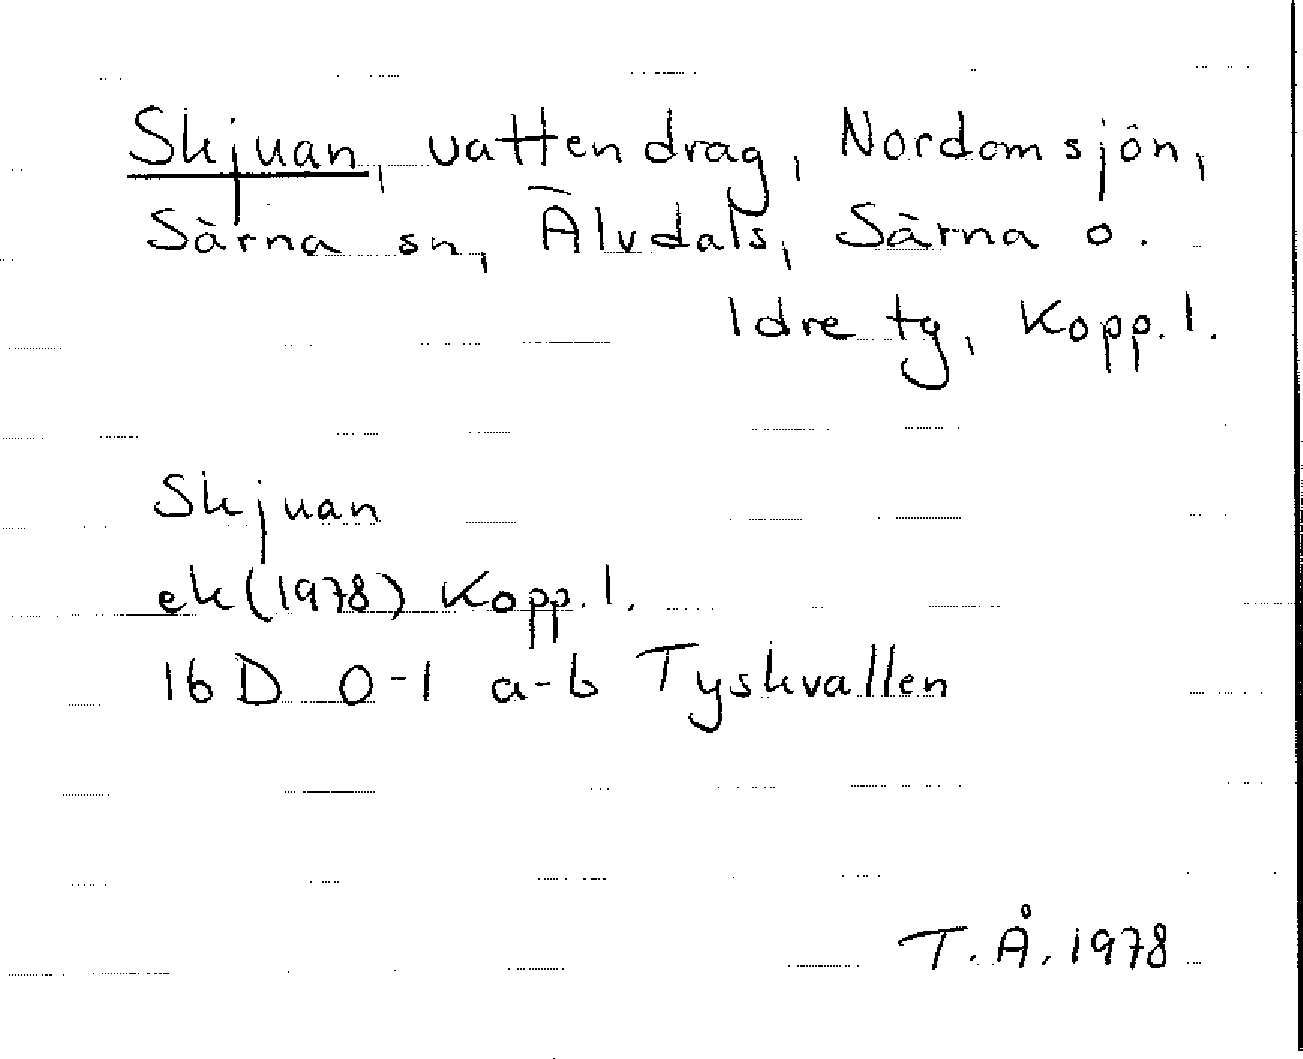 Skjuan, vattendrag, Nordomsjön,
Särna sn, Älvdals, Särna o.
Idre tg, Kopp. l.
Skjuan
ek (1978) Kopp. l.
16 D 0-1 a-b Tyskvallen
T. Å. 1978